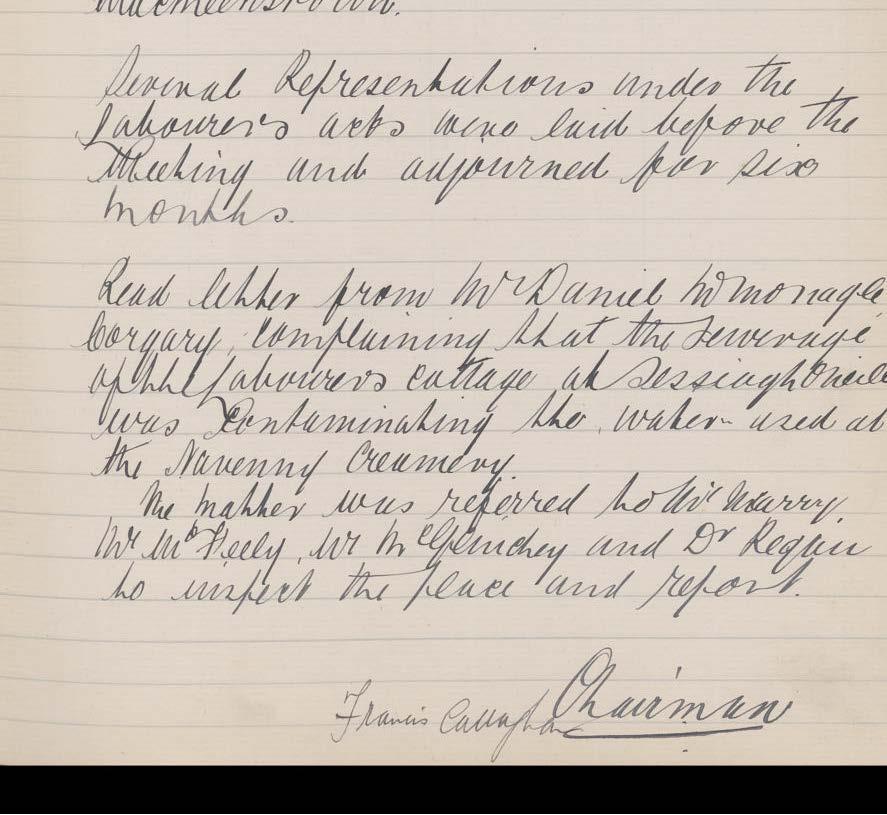 Several Representations under the
Labourers acts were laid before the
Meeting and adjourned for six
months.
Read letter from Mr Daniel McMonagle
Corgary, complaining that the sewerage
of the Labourers cottage at Sessiagh O'Neill
was Contaminating the water used at
the Navenny Creamery
The matter was referred to Mr
Mr McFeely, Mr McGlinchey and Dr
to inspect the place and report.
Francis Callaghan Chairman